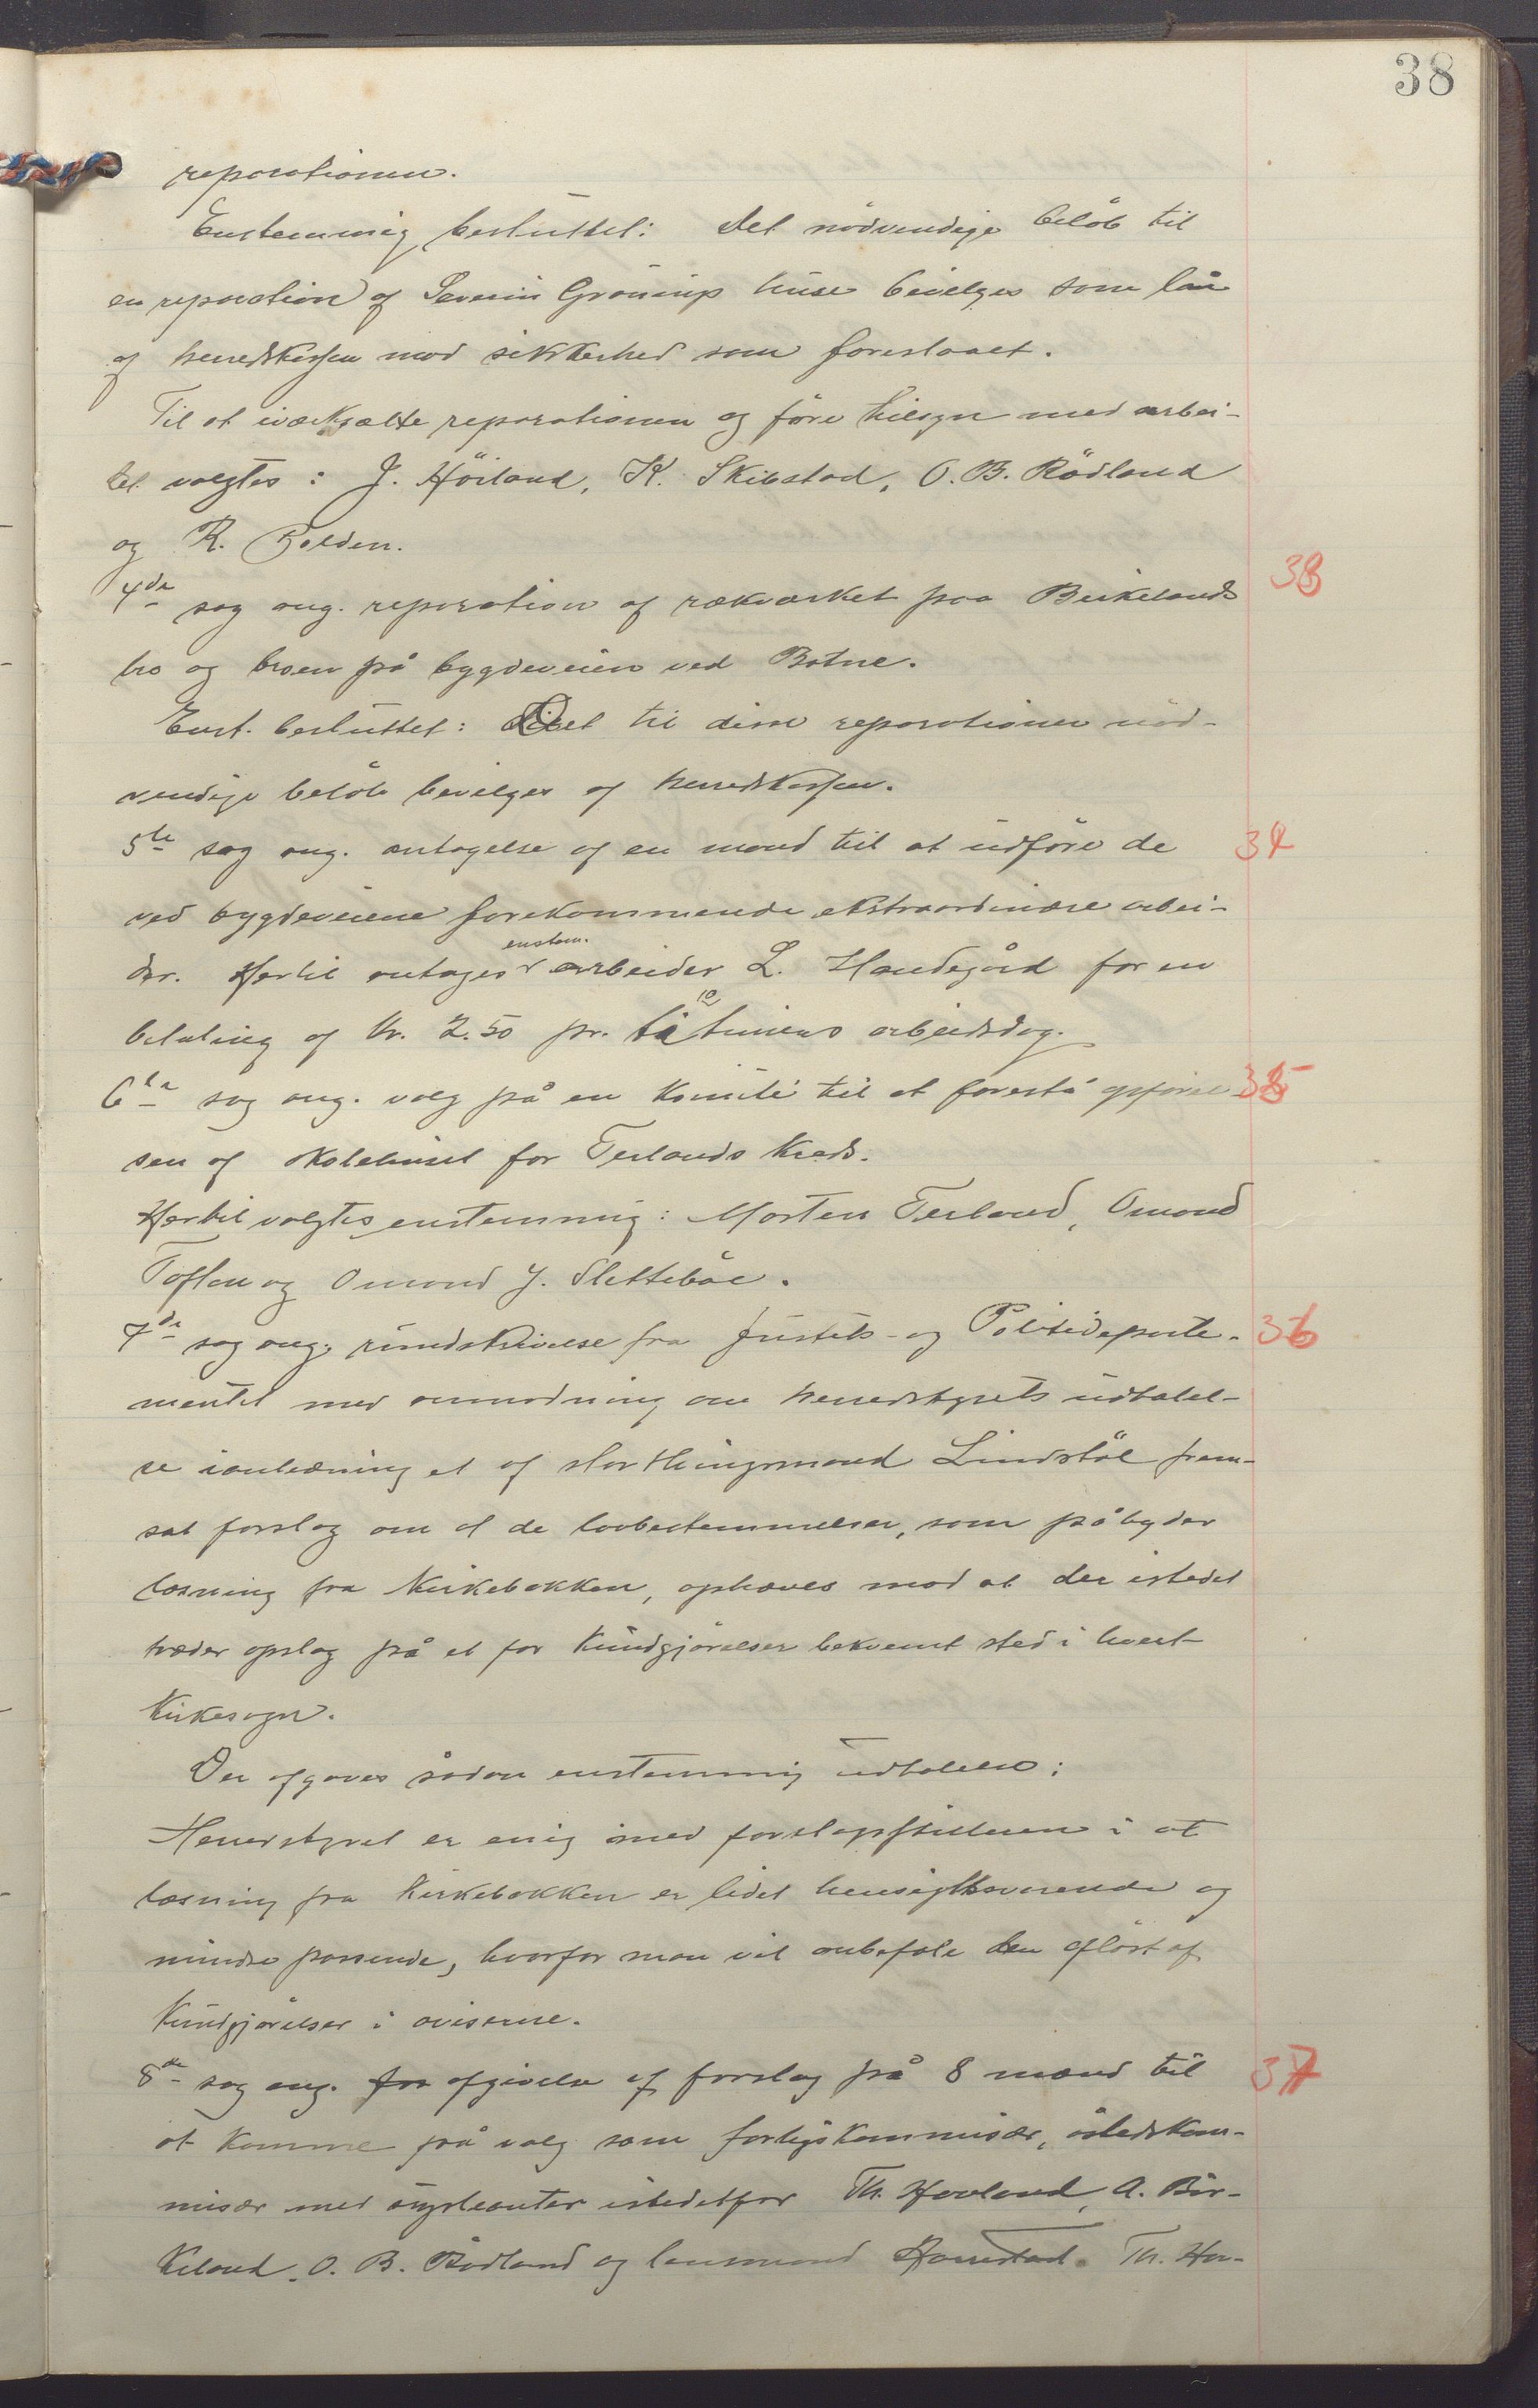 38
reparationen.
Enstemmig besluttet: Det nödvendige belöb til
en reparation af Severin Grönnings huse bevilges som lån
af herredskassen mod sikkerhed som foreslaaet.
Til at iværksætte reparationen og före tilsyn med arbei-
det valgtes: J. Hörland, K. Skibstad, O. B. Rödland
og R. Polden.
4de sag ang. reparation af rækværket paa Beikelands 38
bro og broen på bygdeveien ved Botne.
Enst. besluttet: Det til disse reparationer nöd-
vendige belöb bevilges af herredskassen.
5te sag ang. antagelse af en mand til at udföre de 34
ved bygdeveiene forekommende ekstraordinære arbei-
der. Hertil antages enstem. arbeider L. Haudegård for en
betaling af kr. 2.50 pr. ti 10 timers arbeidsdag.
6te sag ang. valg på en komite til at forestå opförel- 35
sen af skolehuset for Terlands kreds.
Hertil valgtes enstemmig: Morten Terland, Omond
Toften og Omund J. Sletteböe.
7de sag ang. rundskrivelse fra Justits- og Politideparte- 36
mentet med anmodning om herredstyrets udtalel-
se i anledning et af storthingsmand Lindstöl frem-
sat forslag om at de lovbestemmelser, som påbyder
læsning fra kirkebakken, ophæves mod at der istedet
træder opslag på et for kundgjörelser bekvemt sted i hvert
kirkesogn.
Der afgaves sådan enstemmig udtalelse:
Herredstyret er enig med forslagsstilleren i at
læsning fra kirkebakken er lidet hensigtsvarende og
mindre passende, hvorfor man vil anbefale den aflöst af
kundgjörelser i aviserne.
8de sag ang. for afgivelse af forslag på 8 mænd til 37
at komme på valg som forligskommisær, åstedskom-
misær med suppleanter istedetfor Th. Hovland, A. Bir-
keland, O. B. Rödland og lensmand Haurstad. Th. Hov-